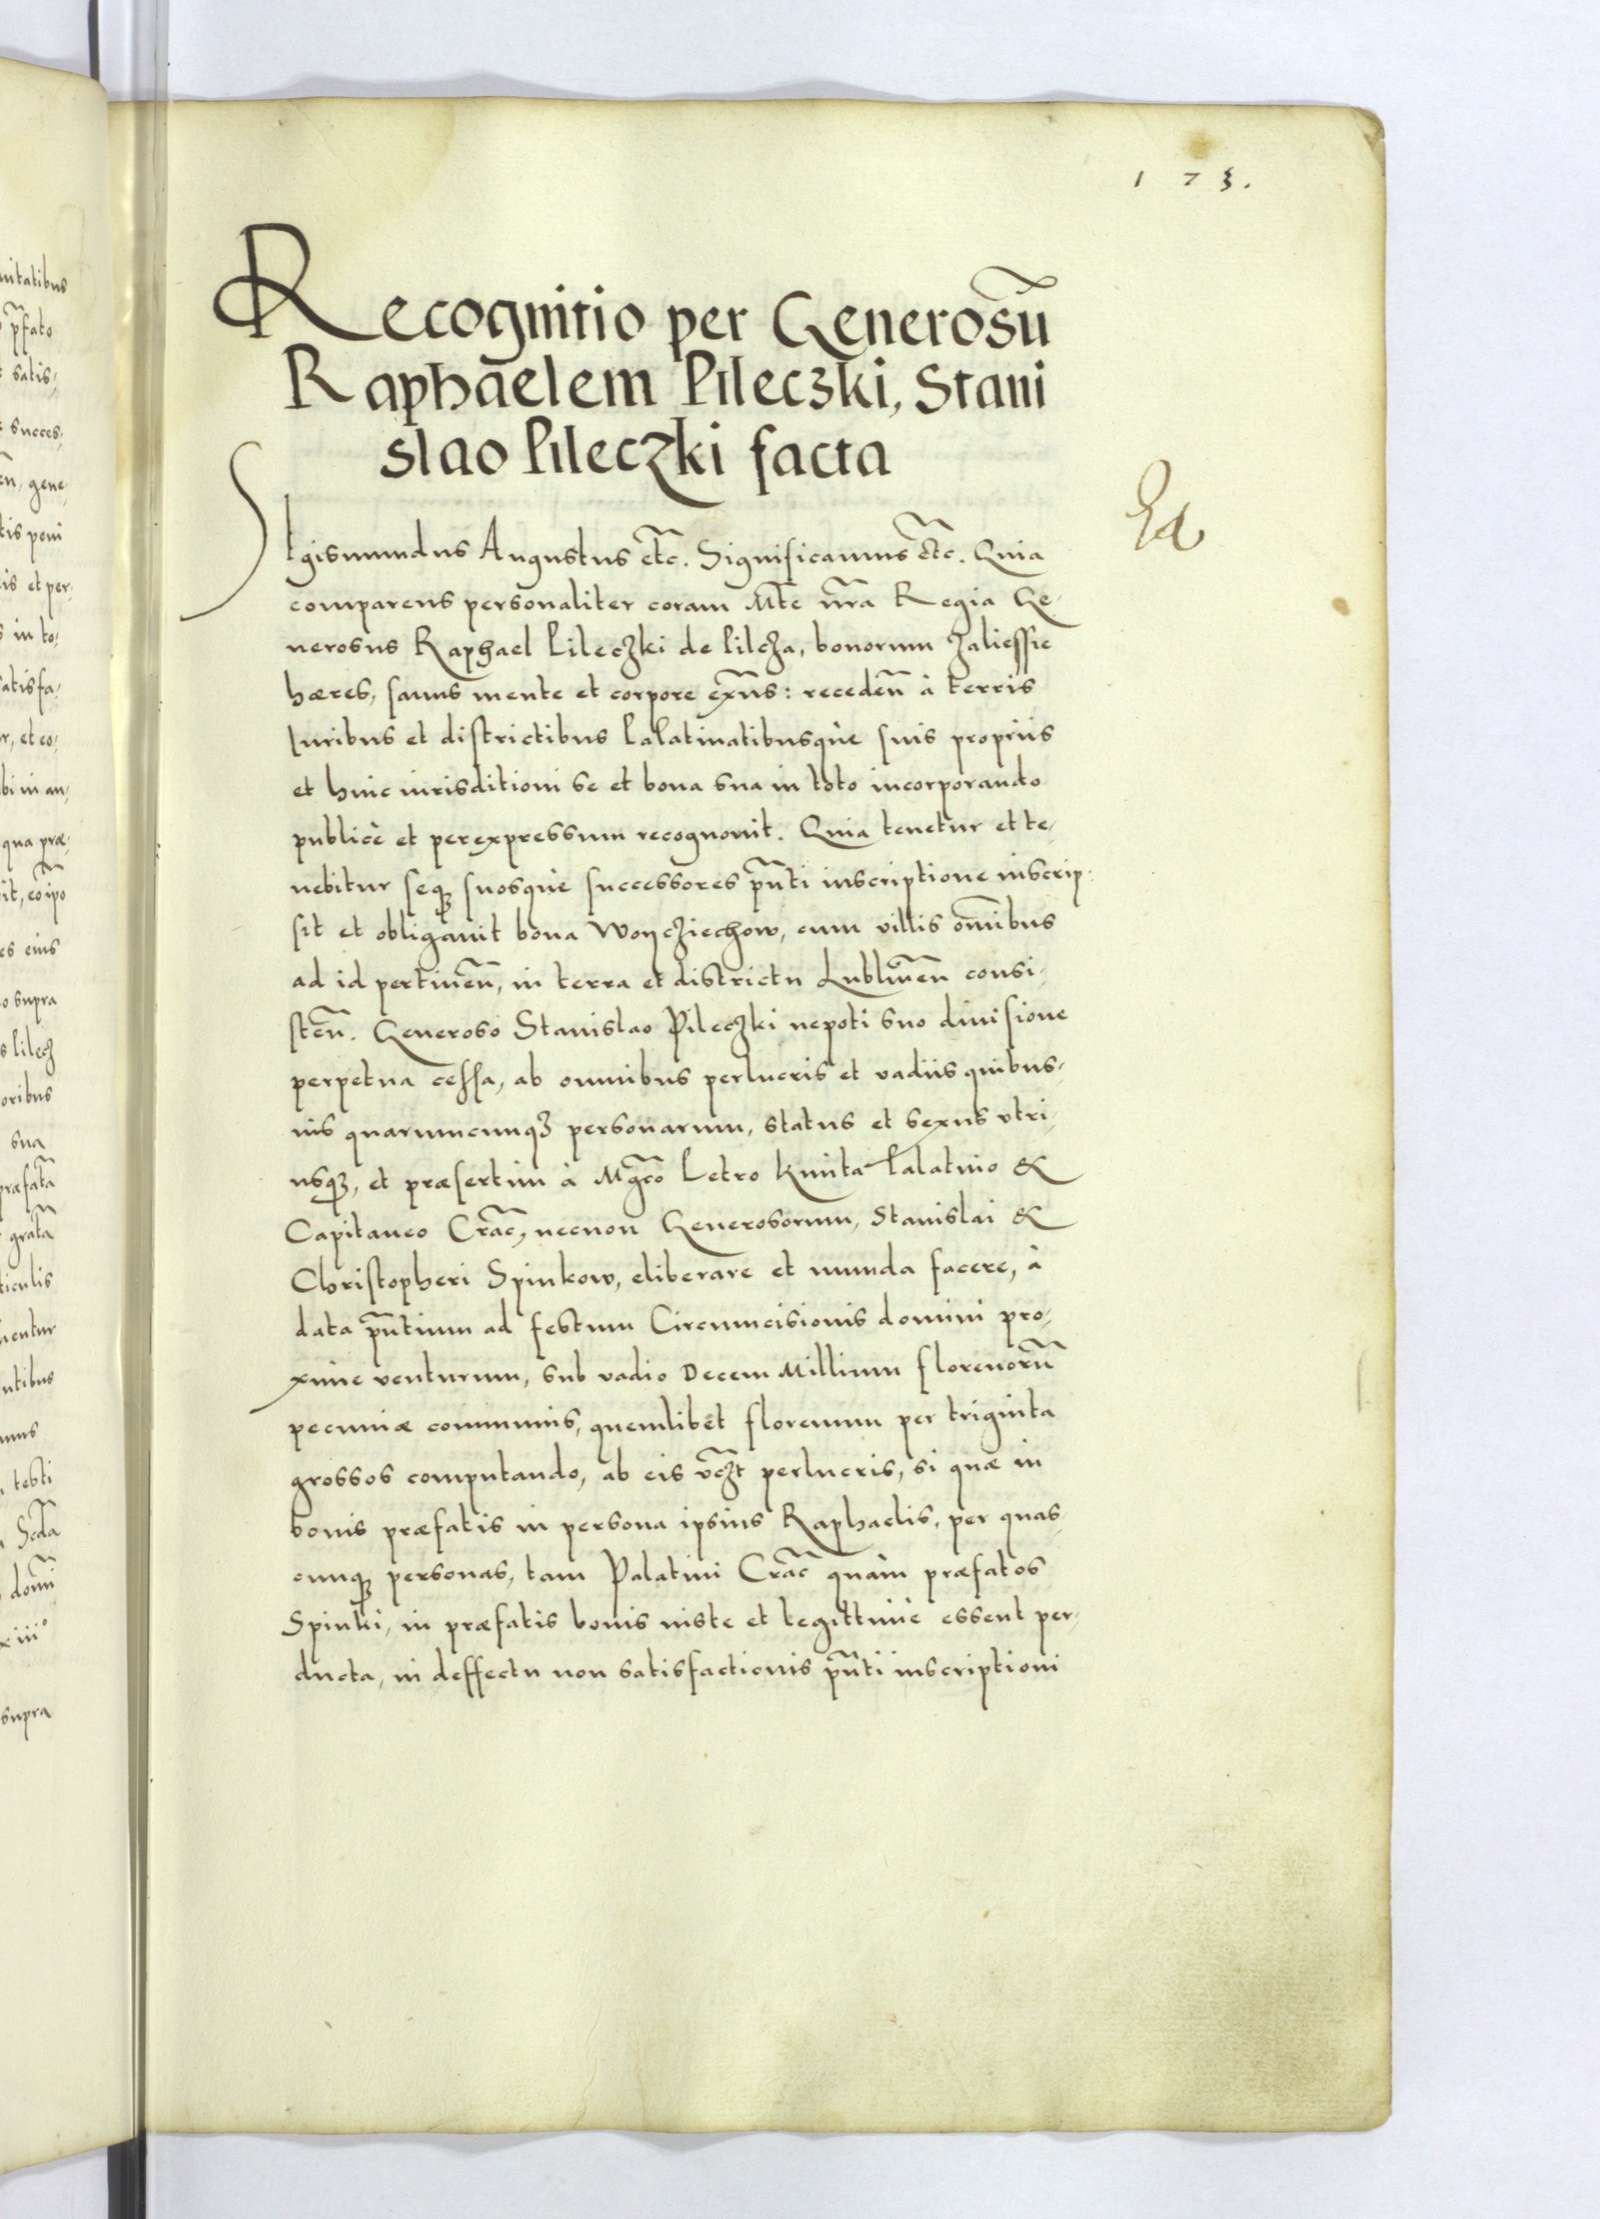 173.
Recognitio per Generosu̅
Raphaelem Pileczki, Stani
slao Pileczki facta
Sigismundus Augustus etc̃. Significamus etc̃. Quia
comparens personaliter coram Mte nr̃a Regia Ge-
nerosus Raphael Pileczki de Pilcza, bonorum Zaliessie
hæres, sanus mente et corpore exñs: recedeñ à terris
Iuribus et districtibus Palatinatibusquè suis proprijs
et huic iurisditioni se et bona sua in toto incorporando
publicè et perexpressum recognouit. Quia tenetur et te-
nebitur seqꝫ suosquè successores pñti inscriptione inscrip-
sit et obligauit bona Woycziechow, cum villis om̃ibus
ad id pertineñ, in terra et districtu Lublineñ consi-
steñ. Generoso Stanislao Pileczki nepoti suo diuisione
perpetua cessa, ab omnibus perlucris et vadiis quibus-
uis quarumcunqꝫ personarum, status et sexus vtri-
usqꝫ, et præsertim à Mgco̅ Petro Kmita Palatino &
Capitaneo Crac̃, necnon Generosorum, Stanislai &
Christopheri Spinkow, eliberare et munda facere, à
data pñtium ad festum Circumcisionis domini pro-
xime venturum, sub vadio Decem Millium florenoru̅
pecuniæ communis, quemlibet florenum per triginta
grossos computando, ab eis vc̃zt perlucris, si quæ in
bonis præfatis in persona ipsius Raphaelis, per quas-
cunqꝫ personas, tam Palatini Crac̃ quàm præfatos
Spinki, in præfatis bonis iuste et legittimè essent per-
ducta, in deffectu non satisfactionis pñti inscriptioni